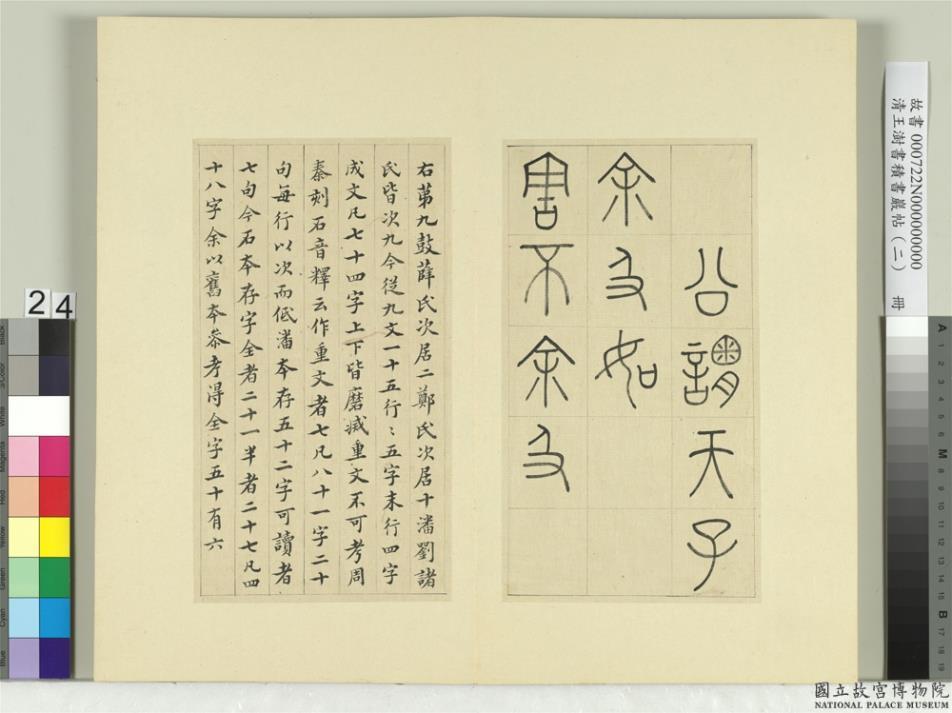 公謂天子
余及如
害不余及
右苐九鼓薛氏次居二鄭氏次居十潘劉諸
氏皆次九今從九文一十五行〻五字末行四字
成文凡七十四字上下皆磨滅重文不可考周
秦刻石音釋云作重文者七凡八十一字二十
句每行以次而低潘本存五十二字可讀者
七句今石本存字全者二十一半者二十七凡四
十八字余以舊本叅考得全字五十有六
故書 000722N000000000
清王澍書積書巖帖（二） 冊
24
國立故宮博物院
NATIONAL PALACE MUSEUM